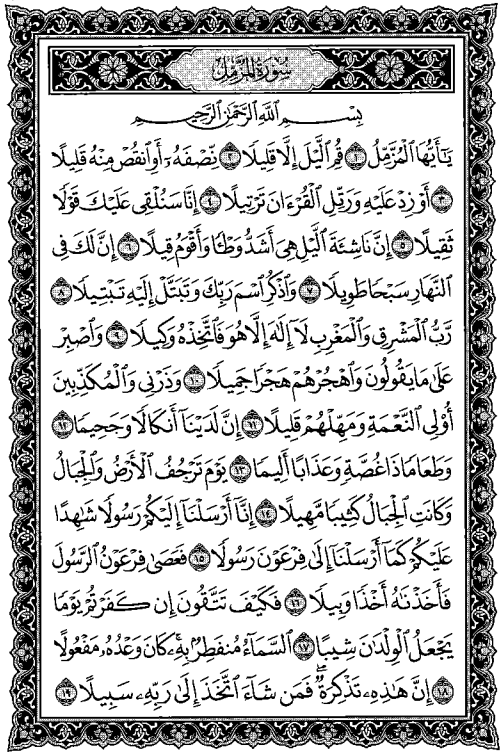 سُورَةُ الْمُزَّمِّلِ
بِسْمِ اللَّهِ الرَّحْمَٰنِ الرَّحِيمِ
يَٰٓأَيُّهَا الْمُزَّمِّلُ ۝١ قُمِ الَّيْلَ إِلَّا قَلِيلًا ۝٢ نِّصْفَهُۥٓ أَوِ انقُصْ مِنْهُ قَلِيلًا
۝٣ أَوْ زِدْ عَلَيْهِ وَرَتِّلِ الْقُرْءَانَ تَرْتِيلًا ۝٤ إِنَّا سَنُلْقِى عَلَيْكَ قَوْلًا
ثَقِيلًا ۝٥ إِنَّ نَاشِئَةَ الَّيْلِ هِىَ أَشَدُّ وَطْـًٔا وَأَقْوَمُ قِيلًا ۝٦ إِنَّ لَكَ فِى
النَّهَارِ سَبْحًا طَوِيلًا ۝٧ وَاذْكُرِ اسْمَ رَبِّكَ وَتَبَتَّلْ إِلَيْهِ تَبْتِيلًا ۝٨
رَّبُّ الْمَشْرِقِ وَالْمَغْرِبِ لَآ إِلَٰهَ إِلَّا هُوَ فَاتَّخِذْهُ وَكِيلًا ۝٩ وَاصْبِرْ
عَلَىٰ مَا يَقُولُونَ وَاهْجُرْهُمْ هَجْرًا جَمِيلًا ۝١٠ وَذَرْنِى وَالْمُكَذِّبِينَ
أُو۟لِى النَّعْمَةِ وَمَهِّلْهُمْ قَلِيلًا ۝١١ إِنَّ لَدَيْنَآ أَنكَالًا وَجَحِيمًا ۝١٢
وَطَعَامًا ذَا غُصَّةٍ وَعَذَابًا أَلِيمًا ۝١٣ يَوْمَ تَرْجُفُ الْأَرْضُ وَالْجِبَالُ
وَكَانَتِ الْجِبَالُ كَثِيبًا مَّهِيلًا ۝١٤ إِنَّآ أَرْسَلْنَآ إِلَيْكُمْ رَسُولًا شَٰهِدًا
عَلَيْكُمْ كَمَآ أَرْسَلْنَآ إِلَىٰ فِرْعَوْنَ رَسُولًا ۝١٥ فَعَصَىٰ فِرْعَوْنُ الرَّسُولَ
فَأَخَذْنَٰهُ أَخْذًا وَبِيلًا ۝١٦ فَكَيْفَ تَتَّقُونَ إِن كَفَرْتُمْ يَوْمًا
يَجْعَلُ الْوِلْدَٰنَ شِيبًا ۝١٧ السَّمَآءُ مُنفَطِرٌۢ بِهِۦ ۚ كَانَ وَعْدُهُۥ مَفْعُولًا
۝١٨ إِنَّ هَٰذِهِۦ تَذْكِرَةٌ ۖ فَمَن شَآءَ اتَّخَذَ إِلَىٰ رَبِّهِۦ سَبِيلًا ۝١٩